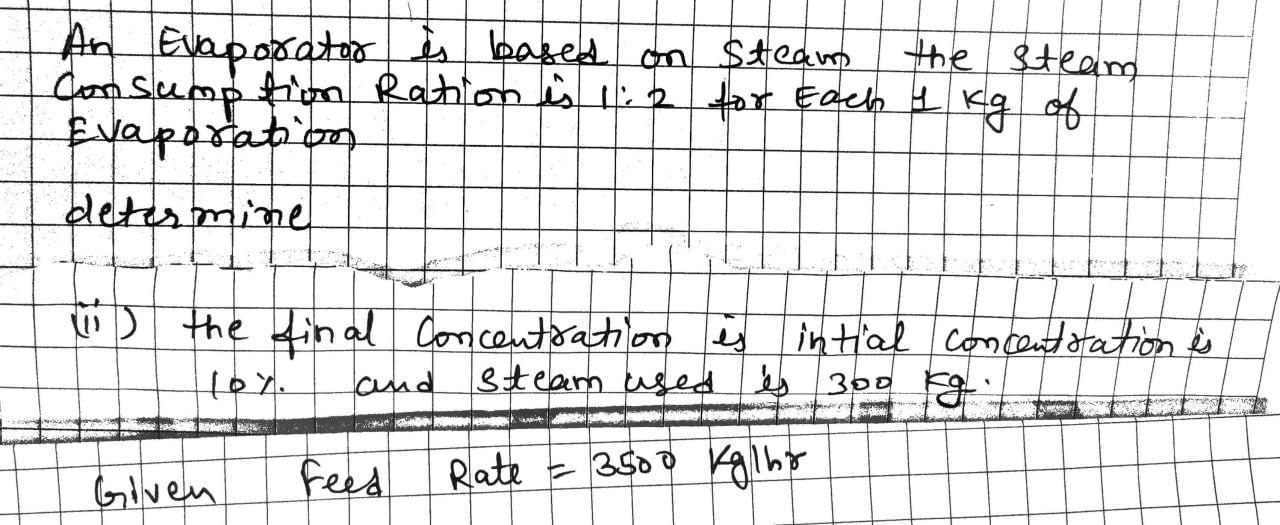 An Evaporator is based on Steam the steam
Consumption Ration is 1:2 for Each 1 Kg of
Evaporation
determine
(ii) the final Concentration is intial concentration is
10%. and steam used is 300 Kg.
Given Feed Rate = 3500 Kg/hr